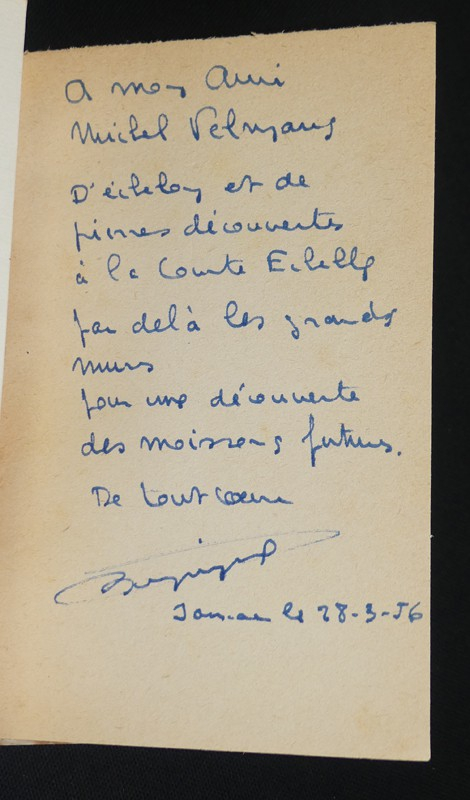 A mon Ami
Michel Velmans
D'échelon et de
pierres découvertes
à la Courte Echelle
par delà les grands
murs
pour une découverte
des moissons futures.
De tout coeur
le 28-3-56